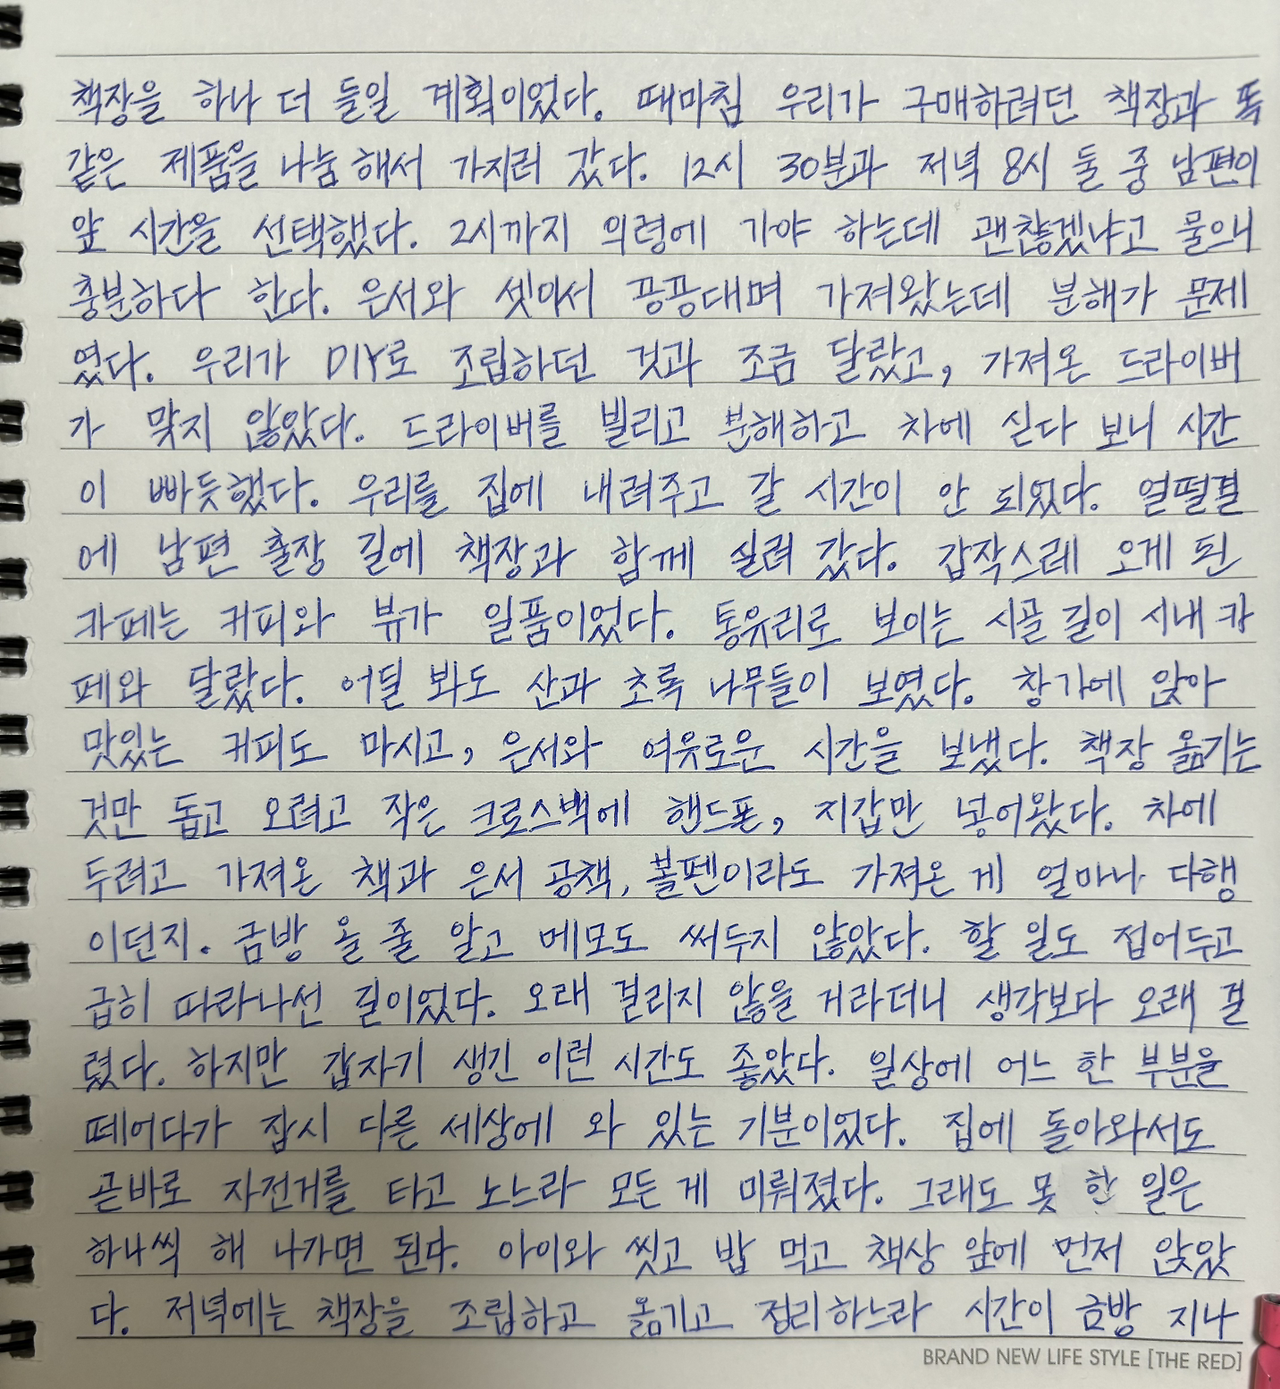 책장을 하나 더 들일 계획이었다. 때마침 우리가 구매하려던 책장과 똑
같은 제품을 나눔해서 가지러 갔다. 12시 30분과 저녁 8시 둘 중 남편이
앞 시간을 선택했다. 2시까지 의령에 가야 하는데 괜찮겠냐고 물으니
충분하다 한다. 은서와 셋이서 끙끙대며 가져왔는데 분해가 문제
였다. 우리가 DIY로 조립하던 것과 조금 달랐고, 가져온 드라이버
가 맞지 않았다. 드라이버를 빌리고 분해하고 차에 싣다 보니 시간
이 빠듯했다. 우리를 집에 내려주고 갈 시간이 안 되었다. 얼떨결
에 남편 출장 길에 책장과 함께 실려 갔다. 갑작스레 오게 된
카페는 커피와 뷰가 일품이었다. 통유리로 보이는 시골 길이 시내 카
페와 달랐다. 어딜 봐도 산과 초록 나무들이 보였다. 창가에 앉아
맛있는 커피도 마시고, 은서와 여유로운 시간을 보냈다. 책장 옮기는
것만 돕고 오려고 작은 크로스백에 핸드폰, 지갑만 넣어왔다. 차에
두려고 가져온 책과 은서 공책, 볼펜이라도 가져온 게 얼마나 다행
이던지. 금방 올 줄 알고 메모도 써두지 않았다. 할 일도 접어두고
급히 따라나선 길이었다. 오래 걸리지 않을 거라더니 생각보다 오래 걸
렸다. 하지만 갑자기 생긴 이런 시간도 좋았다. 일상에 어느 한 부분을
떼어다가 잠시 다른 세상에 와 있는 기분이었다. 집에 돌아와서도
곧바로 자전거를 타고 노느라 모든 게 미뤄졌다. 그래도 못 한 일은
하나씩 해 나가면 된다. 아이와 씻고 밥 먹고 책상 앞에 먼저 앉았
다. 저녁에는 책장을 조립하고 옮기고 정리하느라 시간이 금방 지나
BRAND NEW LIFE STYLE [THE RED]